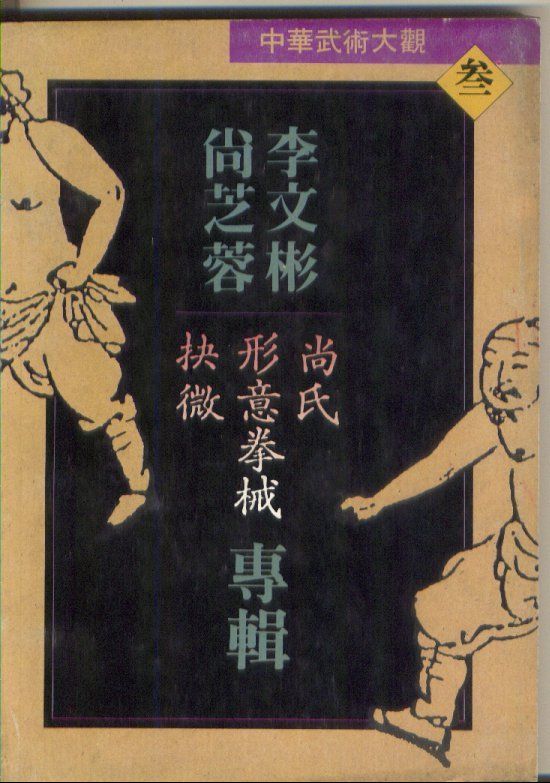 中華武術大觀
叁
李文彬
尚芝蓉
尚氏
形意拳械
抉微
專輯